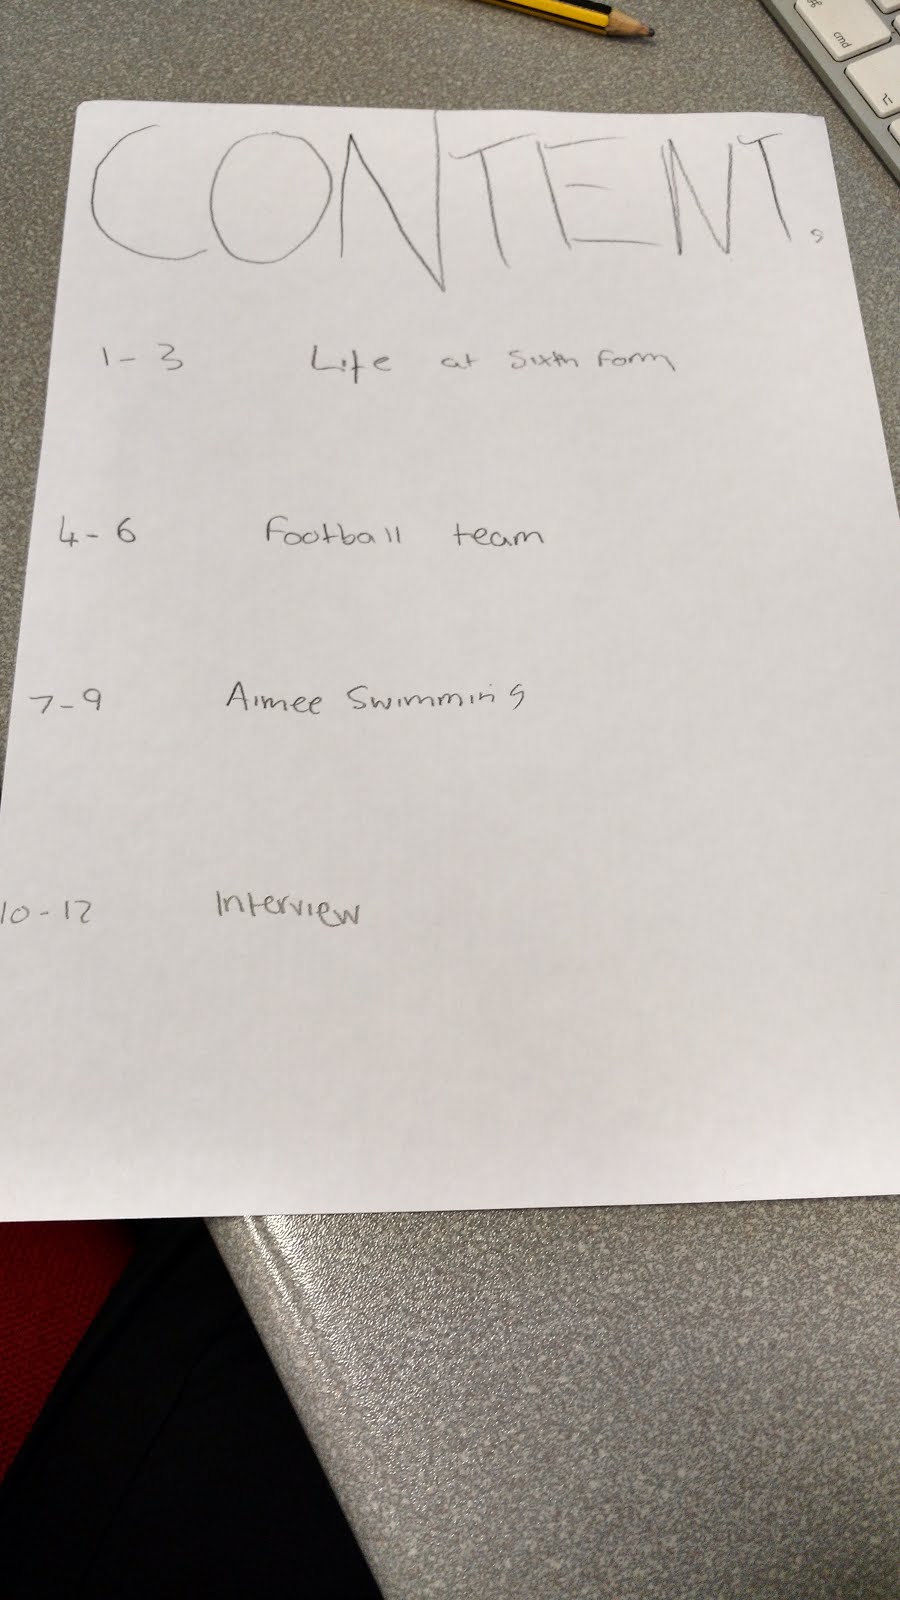 CONTENTs
1-3 Life at Sixth Form
4-6 Football team
7-9 Aimee Swimming
10-12 Interview
cmd